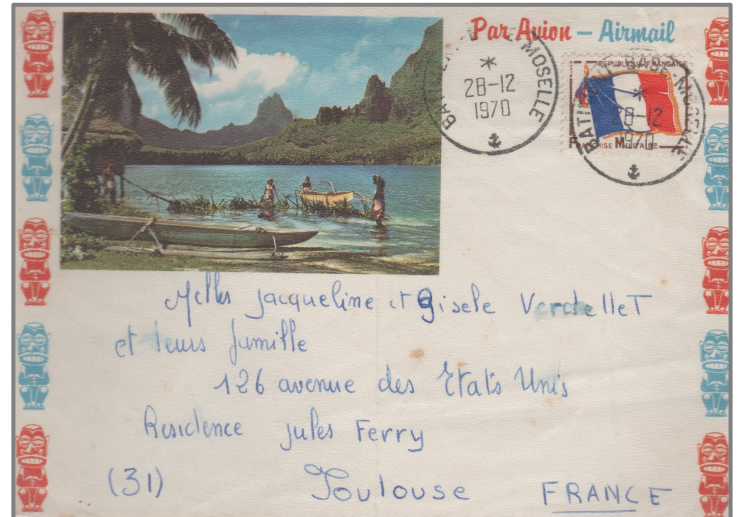 Par Avion – Airmail
MOSELLE
28-12
1970
REPUBLIQUE FRANÇAISE
MOSELLE
28-12
1970
FRANCHISE MILITAIRE
Melles Jacqueline et Gisele VerdelleT
et leurs famille
126 avenue des Etats Unis
Residence Jules Ferry
(31) Toulouse FRANCE